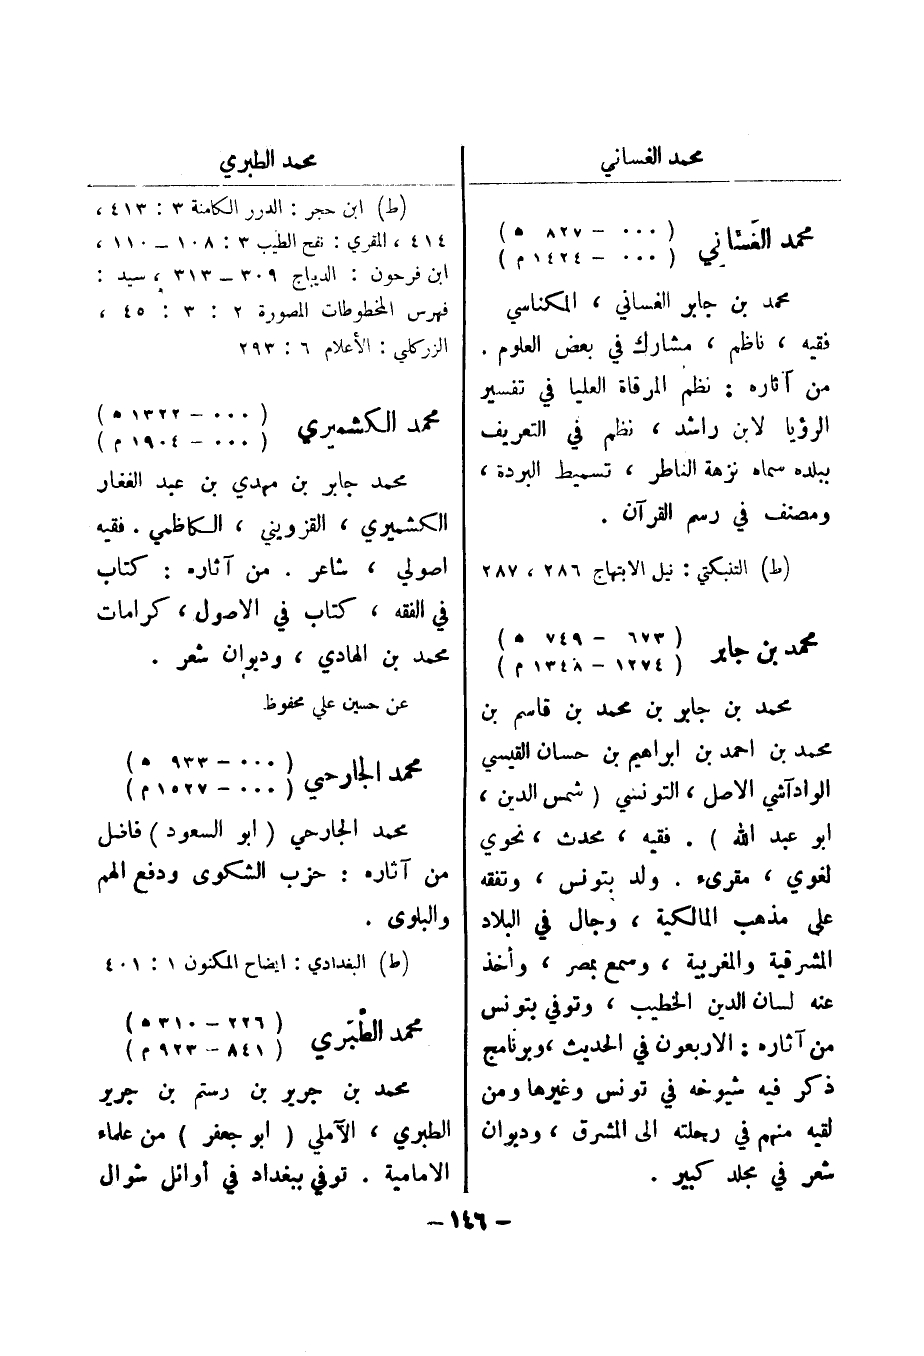 محمد الغساني
محمد الغَسَّاني
( ٠٠٠ – ٨٢٧ ه )
( ٠٠٠ – ١٤٢٤ م )
محمد بن جابر الغساني ، المكناسي
فقيه ، ناظم ، مشارك في بعض العلوم .
من آثاره : نظم المرقاة العليا في تفسير
الرؤيا لابن راشد ، نظم في التعريف
ببلده سماه نزهة الناظر ، تسميط البردة ،
ومصنف في رسم القرآن .
(ط) التنبكتي : نيل الابتهاج ٢٨٦ ، ٢٨٧
محمد بن جابر
( ٦٧٣ – ٧٤٩ ه )
( ١٢٧٤ – ١٣٤٨ م )
محمد بن جابر بن محمد بن قاسم بن
محمد بن احمد بن ابراهيم بن حسان القيسي
الوادآشي الاصل ، التونسي ( شمس الدين ،
ابو عبد الله ) . فقيه ، محدث ، نحوي
لغوي ، مقرىء . ولد بتونس ، وتفقه
على مذهب المالكية ، وجال في البلاد
المشرقية والمغربية ، وسمع بمصر ، وأخذ
عنه لسان الدين الخطيب ، وتوفي بتونس
من آثاره : الاربعون في الحديث ، وبرنامج
ذكر فيه شيوخه في تونس وغيرها ومن
لقيه منهم في رحلته الى المشرق ، وديوان
شعر في مجلد كبير .
محمد الطبري
(ط) ابن حجر : الدرر الكامنة ٣ : ٤١٣ ،
٤١٤ ، المقري : نفح الطيب ٣ : ١٠٨ – ١١٠ ،
ابن فرحون : الديباج ٣٠٩ – ٣١٣ ، سيد :
فهرس المخطوطات المصورة ٢ : ٣ : ٤٥ ،
الزركلي : الأعلام ٦ : ٢٩٣
محمد الكشميري
( ٠٠٠ – ١٣٢٢ ه )
( ٠٠٠ – ١٩٠٤ م )
محمد جابر بن مهدي بن عبد الغفار
الكشميري ، القزويني ، الكاظمي . فقيه
اصولي ، شاعر . من آثاره : كتاب
في الفقه ، كتاب في الاصول ، كرامات
محمد بن الهادي ، وديوان شعر .
عن حسين علي محفوظ
محمد الجارحي
( ٠٠٠ – ٩٣٣ ه )
( ٠٠٠ – ١٥٢٧ م )
محمد الجارحي ( ابو السعود ) فاضل
من آثاره : حزب الشكوى ودفع الهم
والبلوى .
(ط) البغدادي : ايضاح المكنون ١ : ٤٠١
محمد الطَبَري
( ٢٢٦ – ٣١٠ ه )
( ٨٤١ – ٩٢٣ م )
محمد بن جرير بن رستم بن جرير
الطبري ، الآملي ( ابو جعفر ) من علماء
الامامية . توفي ببغداد في أوائل شوال
– ١٤٦ –